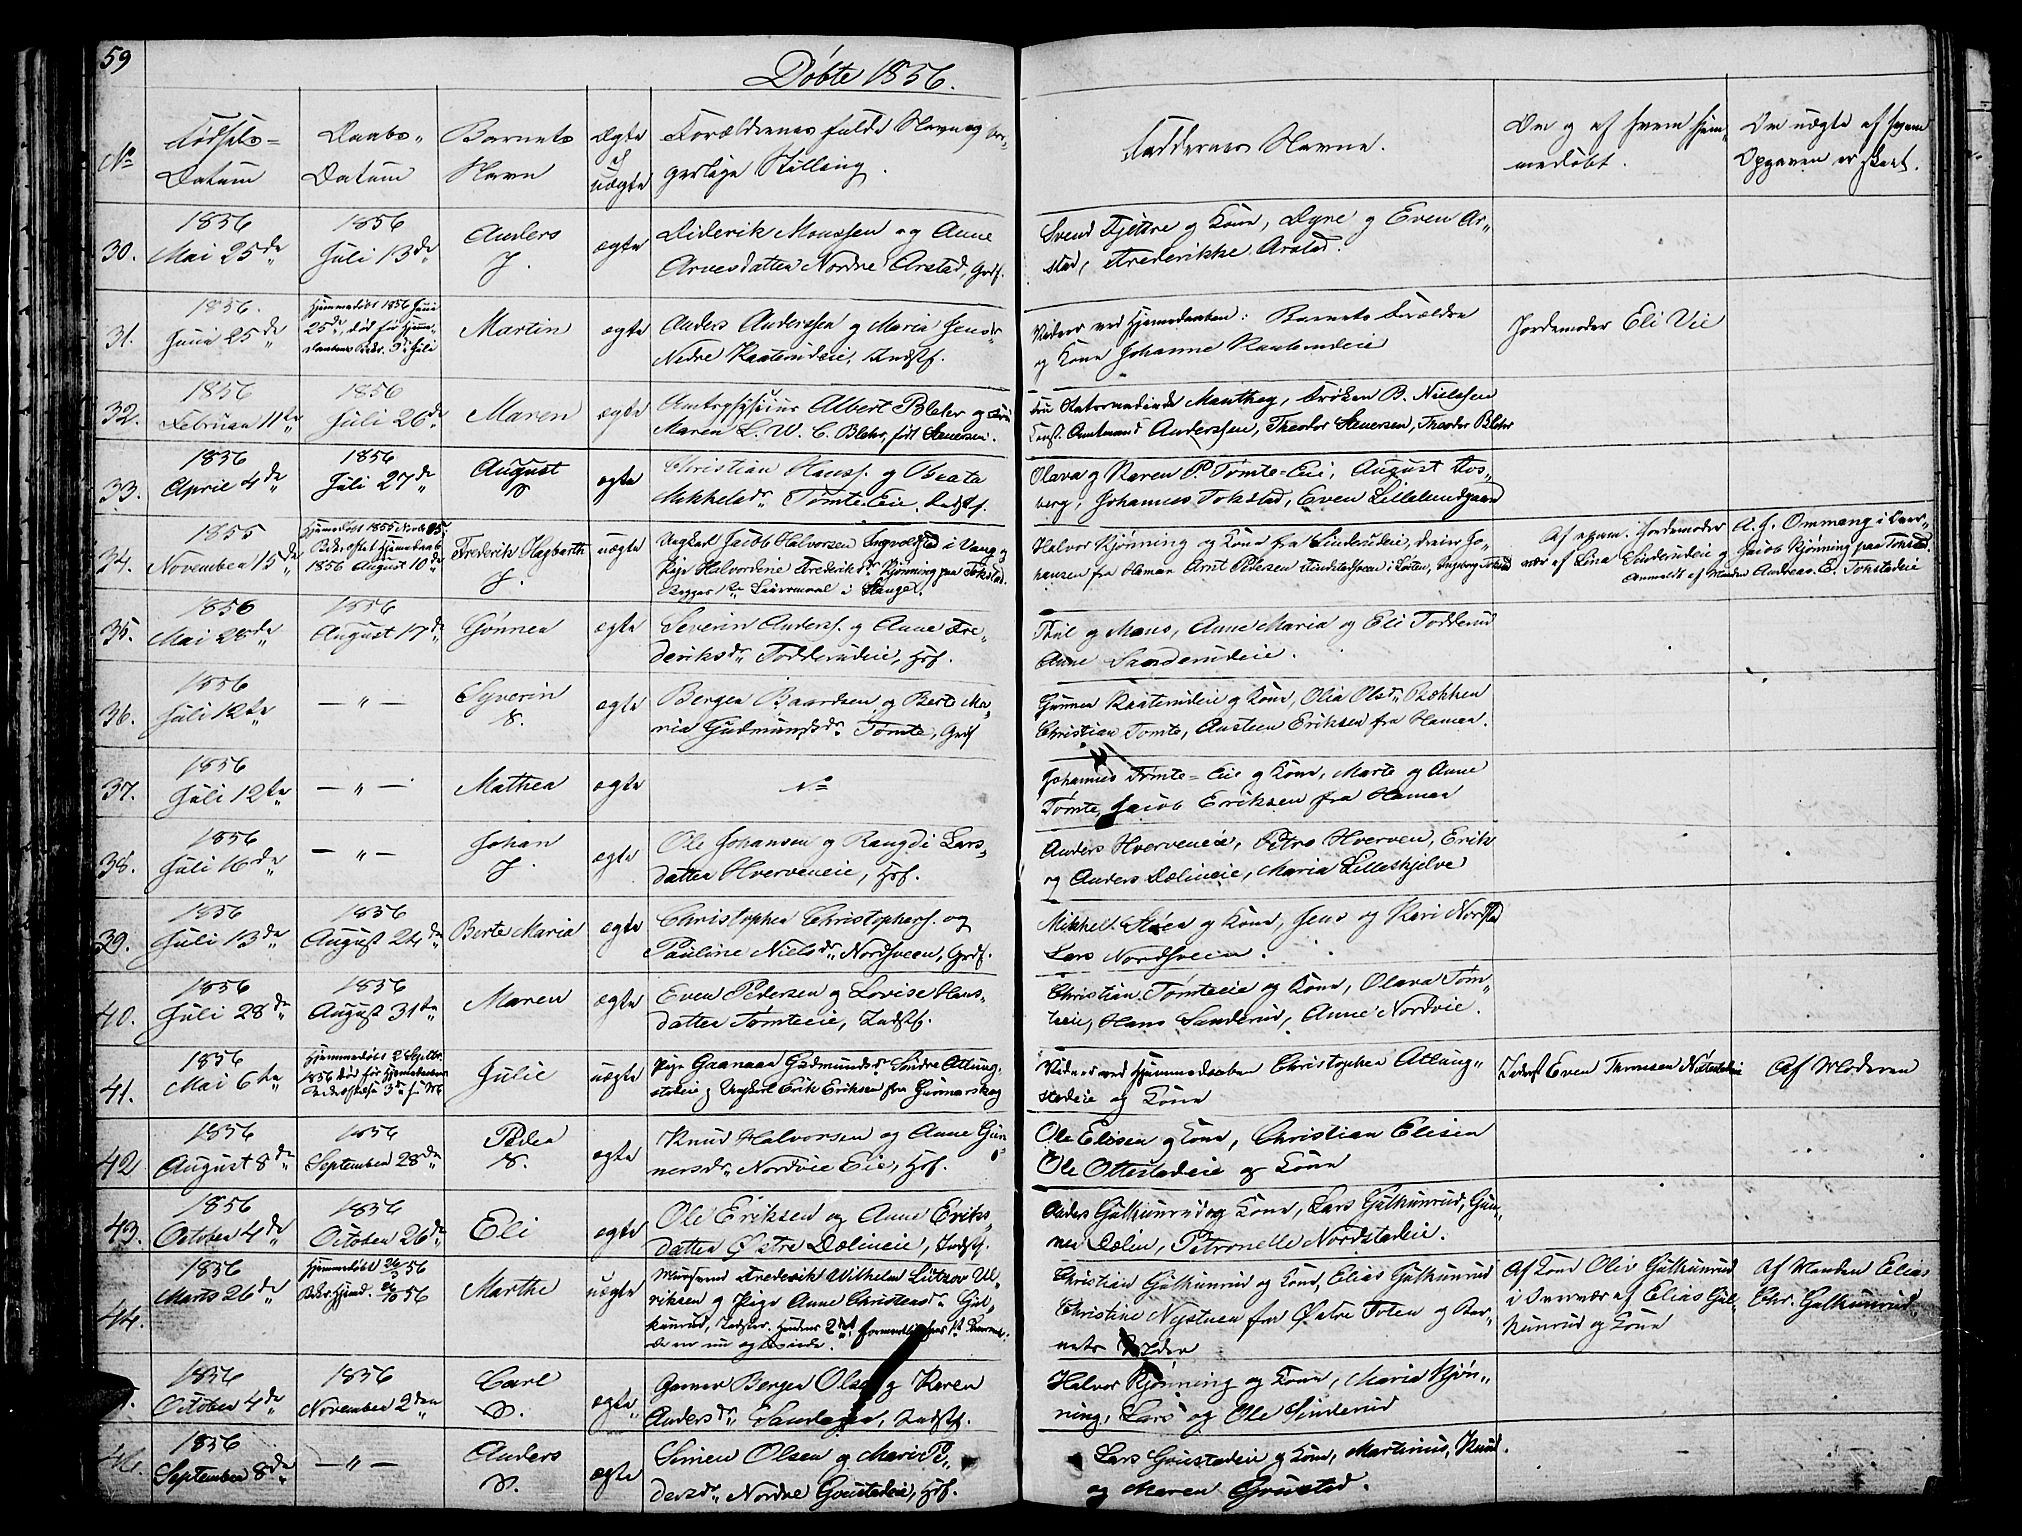 59
Døbte 1856.
No
Fødsels-
Datum
Daabs-
Datum
Barnets
Navn
Ægte
el
uægte
Forældrenes fulde Navne og bor-
gerlige Stilling.
Faddernes Navne.
Om og af hvem hjem-
medøbt.
Om uægte af hvem
Opgaven er skeet.
30.
1856
Mai 25de
1856
Juli 13de
Anders
J.
ægte
Diderik Monssen og Anne
Arnesdatter Nordre Arstad, Grdf.
Svend Fjettre og Kone, Dyne og Even Ar-
stad, Frederikke Arstad.
31.
1856.
Juni 25de
Hjemmedøbt 1856 Juni
25de, død før Hjemme-
daabens Bekr. 3die Juli
Martin
ægte
Anders Anderssen og Maria Jensdr
Nedre Kaaterudeie, Indstf.
Vidner ved Hjemmedaaben: Barnets Forældre
og Kone Johanne Kaaterudeie
Jordemoder Eli Vie
32.
1856
Februar 11te
1856
Juli 26de
Maren
ægte
Amtsphysicus Albert Blehr og Fru
Maren L. W. C. Blehr, født Stuersen.
Fru Manthey, Frøken B. Nielssen
Const. Amtmand Anderssen, Theodor Stuersen, Theodor Blehr
33.
1856
April 4de
1856
Juli 27de
August
ægte
Christian Hanss. og Beata
Mikkelsdr Tømte-Eie, Indstf.
Olava og Karen P. Tømte-Eie, August Fos-
berg, Johannes Tokstad, Even Lillelundgaard
34.
1855
November 15de
Hjemmedøbt 1855 Novbr 25,
Bekræftet Hjemmedaab
1856 August 10de
Frederik Hagbarth
J.
uægte
Ungkarl Jacob Halvorsen Ingvoldstad i Vang og
Pige Halvordine Frederiksdr Kjønning paa Tokstad.
Begges 1ste Leiermaal i Stange.
Halvor Kjønning og Kone fra Sinderudeie, Jo-
hansen fra Hamar Arnt Pedersen i Løiten, Ingeborg Tokstad
Af Jordemoder
nær af Lina Sinderudeie og
A. J. Ommang i Nær-
Jacob Kjønning paa Tokstad.
Anmeldt af Manden Andreas E. Tokstadeie
35.
1856
Mai 28de
1856
August 17de
Gønner
ægte
Severin Anderss. og Anne Fre-
deriksdr Todderudeie, Hsf.
og Mons, Anne Maria og Eli Todderud
Anne Sanderudeie.
36.
1856
Juli 12te
— " —
Syverin
ægte
Bergen Baardsen og Berte Ma-
ria Gudmundsdr Tømte, Grdf
Gunner Kaaterudeie og Kone, Olia Olsdr Bekken
Christian Tømte, Austeen Eriksen fra Hamar.
37.
1856
Juli 12te
— " —
Mathea
ægte
Johannes Tømte-Eie og Kone, Marte og Anne
Tømte, Jacob Eriksen fra Hamar
38.
1856
Juli 16de
— " —
Johan
J.
ægte
Ole Johansen og Rangdi Lars-
datter Hverveneie, Hsf.
Anders Hverveneie, Petro Hverven, Erik
og Anders Dælineie, Maria Lilleskjelve
39.
1856
Juli 13de
1856
August 24de
Berte Maria
ægte
Christopher Christophers. og
Pauline Nielsdr Nordsveen, Grdf.
Mikkel Støen og Kone, Jens og Kari Nordstad
Lars Nordsveen.
40.
1856
Juli 28de
1856
August 31te
Maren
ægte
Even Pedersen og Lovise Hans-
datter Tømteeie, Indstf.
Christian Tømteeie og Kone, Olava Tøm-
teeie, Hans Sanderud, Anne Nordvie.
41.
1856
Mai 6te
Hjemmedøbt 2 Septbr.
1856 død før Hjemmedaabens
Julie
uægte
Pige Gaanaar Gudmundsdr Søndre Atlung-
stadeie og Ungkarl Erik Eriksen fra Gunnarskog
Vidner ved Hjemmedaaben Christopher Atlung-
stadeie og Kone
Inderst Even Thomsen Nøtestadeie
Af Moderen
42.
1856
August 8de
1856
September 28de
Peder
ægte
Knud Halvorsen og Anne Gun-
nersdr Nordvie Eie, Hsf.
Ole Elisen og Kone, Christian Elisen
Ole Ottestadeie og Kone
43.
1856
October 4de
1856
October 26de
Eli
ægte
Ole Eriksen og Anne Eriks-
datter Østre Dælineie, Indstf.
Anders Gulkunrud og Kone, Lars Gulkunrud, Gun-
ner Dælin, Petronelle Nordstadeie.
44.
1856
Marts 26de
Hjemmedøbt 26/3 56
Bekr Hjemd. 26/10 56
Marthe
uægte
Frederik Wilhelm Lützov Ul-
riksen og Pige Anne Christensdr Gul-
kunrud, Indster.
Christian Gulkunrud og Kone, Elias Gulkunrud
Christine Nystuen fra Østre Toten og Bar-
nets Fader
Af Kone Oliv Gulkunrud
i Nærvær af Elias Gul-
kunrud og Kone
Af Manden Elias
Chr. Gulkunrud.
1856
October 4de
1856
November 2den
Carl
ægte
Garver Bergen Olsen og Karen
Andersdr Sandager, Indstf.
Halvor Kjønning og Kone, Maria Kjøn-
ning, Lars og Ole Sinderud
46.
1856
September 8de
— " —
Anders
ægte
Simen Olsen og Mari Pe-
dersdr Nordre Grustadeie, Hsf.
Lars Grustadeie og Kone, Martinus, Knud
og Maren Grustad.